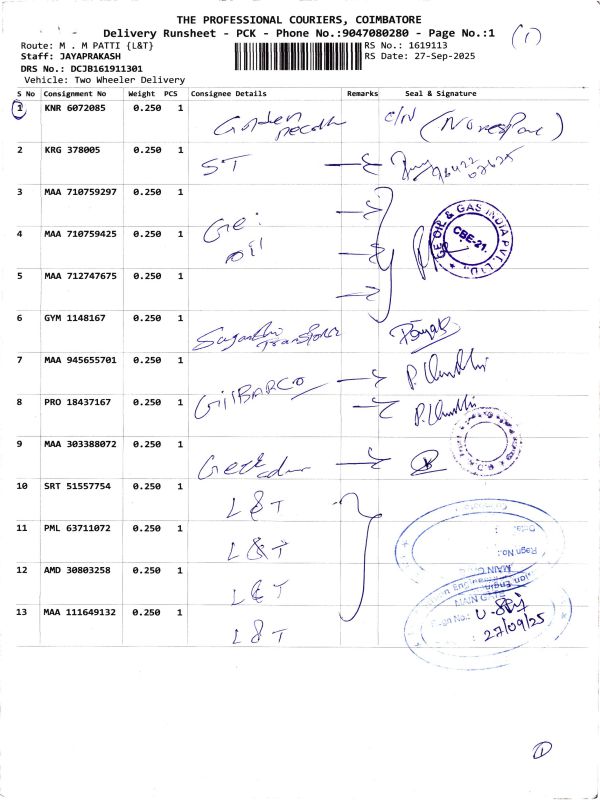 THE PROFESSIONAL COURIERS, COIMBATORE
Delivery Runsheet - PCK - Phone No.:9047080280 - Page No.:1
(1)
Route: M . M PATTI {L&T}
RS No.: 1619113
Staff: JAYAPRAKASH
RS Date: 27-Sep-2025
DRS No.: DCJB161911301
Vehicle: Two Wheeler Delivery
S No Consignment No Weight PCS Consignee Details Remarks Seal & Signature
1 KNR 6072085 0.250 1 Golden
2 KRG 378005 0.250 1 ST
3 MAA 710759297 0.250 1
4 MAA 710759425 0.250 1
GE OIL & GAS INDIA PVT. LTD.
CBE-21.
5 MAA 712747675 0.250 1
6 GYM 1148167 0.250 1
7 MAA 945655701 0.250 1
8 PRO 18437167 0.250 1 GilBARCO
9 MAA 303388072 0.250 1
10 SRT 51557754 0.250 1 L&T
11 PML 63711072 0.250 1 L&T
12 AMD 30803258 0.250 1 L&T
13 MAA 111649132 0.250 1 L&T
27/09/25
1